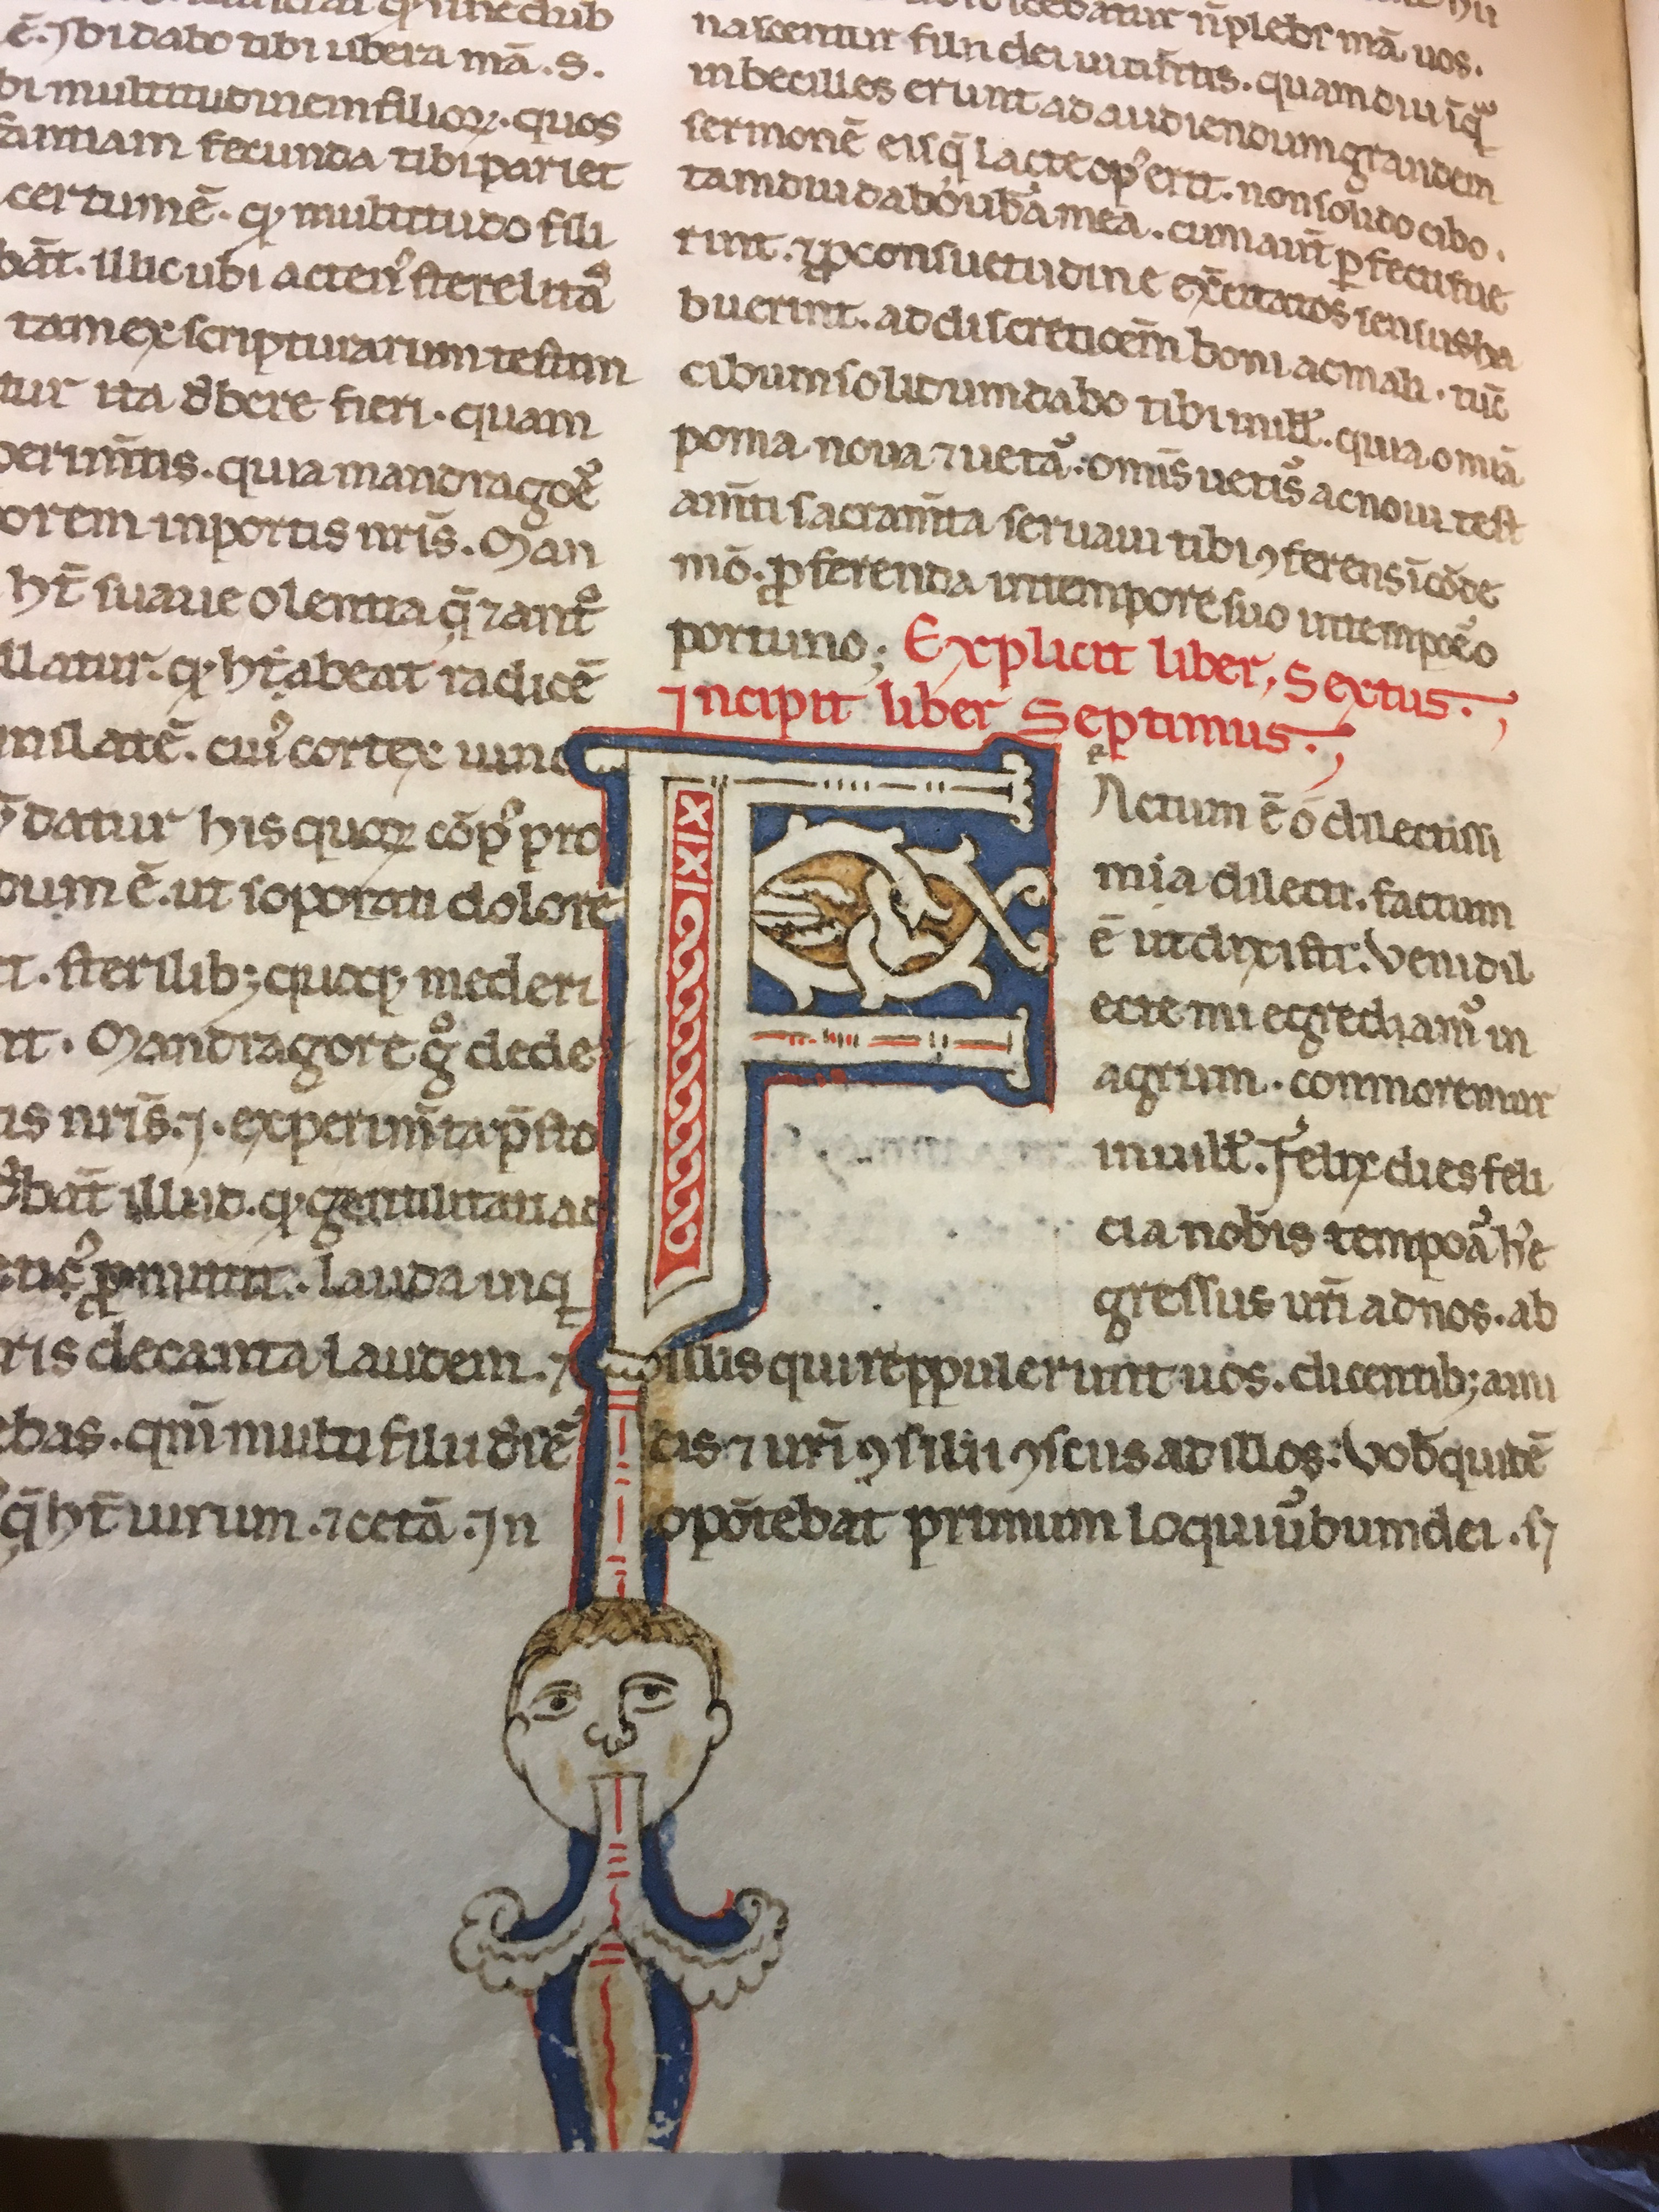 ē. Ibi dabo tibi ubera mā. S.
bi multitudinem filioꝝ. quos
fantiam fecunda tibi pariet
certum ē. qꝫ multitudo fili
bāt. illic ubi acten᾿ sterelita
tam ex scripturarum testim
tur ita dbere fieri. quam
perimtis. quia mandragoe
orem in portis nris. Man
ht suave olentia q̄ ⁊ ant
llatur. qꝫ ht abeat radicē
milatē. cui᾿ cortex uino
datur his quoꝝ cōp᾿ pro
dum ē. ut soporati dolorē
t. sterilibꝫ quoqꝫ mederi
nt. Mandragore g dede
is nris. .i. experimta psto
dbat illud. qꝫ gentilitati ad
ꝓmittit. Lauda inq
ris decanta laudem. ⁊
ebas. qm multi filii diē
q̄ ht uirum. ⁊ cetā. In
nascentur filii dei uiuitis. quamdiu iq
inbecilles erunt ad audiendum grandem
sermonē eisq̄ lacte op᾿ erit. non solido cibo.
tamdiu dabo ub᾿a mea. cum aut̄ ꝑfecti fue
rint. ⁊ ꝓ consuetudine excitatos sensus ha
buerint. ad discreticem boni ac mali. tūc
cibum solidum dabo tibi in ill. quia omia
poma noua ⁊ ueta. omis uetis ac noui test
amti sacramta seruaui tibi ꝯferens i code
mō. ꝓferenda in tempore suo in tempoe o
portuno; Explicit liber. Sextus.
Incipit liber Septimus.
FActum ē o dilectissi
mia dilecti. factum
ē ut dixisti. Veni dil
ecte mi egrediam᾿ in
agrum. commoremur
in uill. Felix dies feli
cia nobis tempoa h᾿ e
gressus uri ad nos. ab
illis qui reppulerunt uos. dicentibꝫ ami
cis ⁊ uri ꝯsilii ꝯscus ad illos. Vob quidē
opotebat primum loqui ūbum dei. s⁊